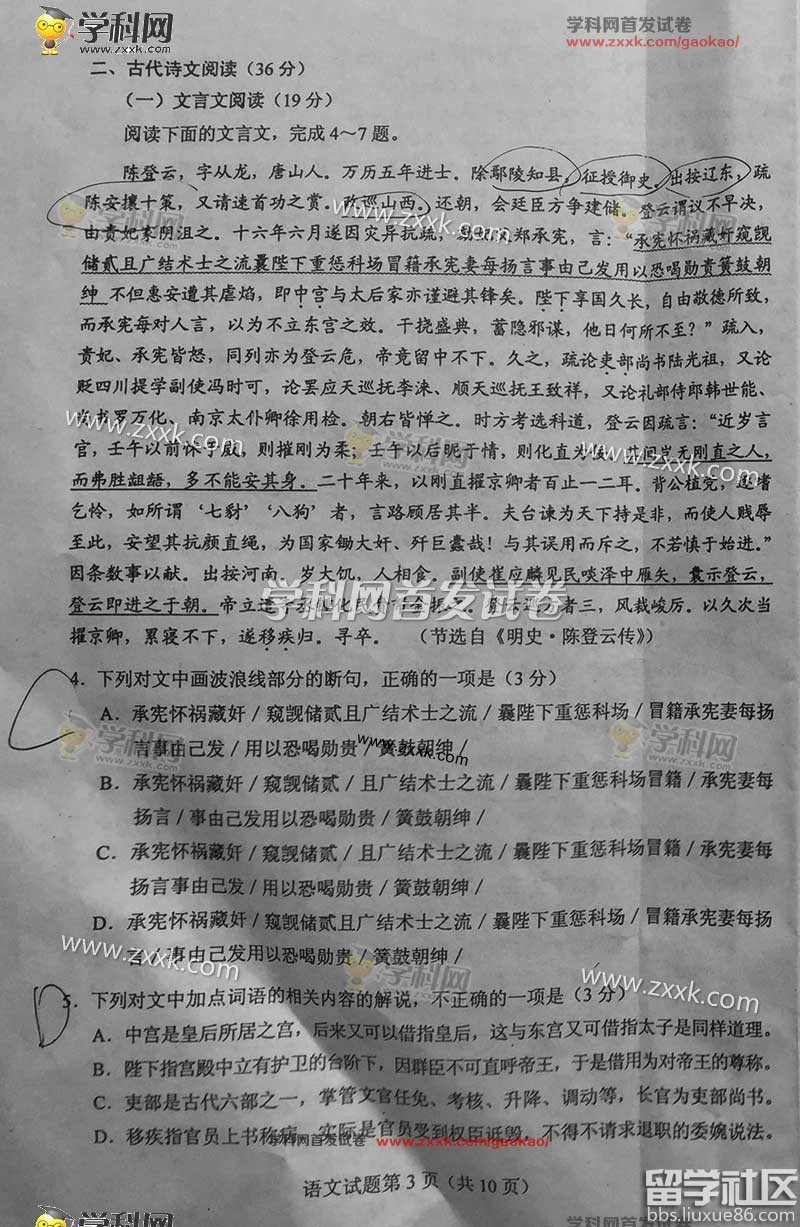 学科网
www.zxxk.com
学科网首发试卷
www.zxxk.com/gaokao/
二、古代诗文阅读（36 分）
（一）文言文阅读（19 分）
阅读下面的文言文，完成 4～7 题。
陈登云，字从龙，唐山人。万历五年进士。除鄢陵知县，征授御史。出按辽东，疏
陈安攘十策，又请速首功之赏。改巡山西。还朝，会廷臣方争建储。登云谓议不早决，
由贵妃家阴沮之。十六年六月遂因灾异抗疏，郑承宪，言：“承宪怀祸藏奸窥觊
储贰且广结术士之流曩陛下重惩科场冒籍承宪妻每扬言事由己发用以恐喝勋贵簧鼓朝
绅 不但惠安遭其虐焰，即中宫与太后家亦谨避其锋矣。陛下享国久长，自由敬德所致，
而承宪每对人言，以为不立东宫之效。干挠盛典，蓄隐邪谋，他日何所不至？”疏入，
贵妃、承宪皆怒，同列亦为登云危，帝竟留中不下。久之，疏论吏部尚书陆光祖，又论
贬四川提学副使冯时可，论罢应天巡抚李涞、顺天巡抚王致祥，又论礼部侍郎韩世能、
尚书罗万化、南京太仆卿徐用检。朝右皆惮之。时方考选科道，登云因疏言：“近岁言
官，壬午以前怵于威，则摧刚为柔；壬午以后昵于情，则化直为佞。其间岂无刚直之人，
而弗胜龃龉，多不能安其身。二十年来，以刚直擢京卿者百止一二耳。背公植党，逐嗜
乞怜，如所谓‘七豺’‘八狗’者，言路顾居其半。夫台谏为天下持是非，而使人贱辱
至此，安望其抗颜直绳，为国家锄大奸、歼巨蠹哉！与其误用而斥之，不若慎于始进。”
因条数事以献。出按河南。岁大饥，人相食。副使崔应麟见民啖泽中雁矢，囊示登云，
登云即进之于朝。帝立遣寺丞钟化民分赈之。登云巡方者三，风裁峻厉。以久次当
擢京卿，累寝不下，遂移疾归。寻卒。 （节选自《明史·陈登云传》）
4．下列对文中画波浪线部分的断句，正确的一项是（3 分）
A．承宪怀祸藏奸／窥觊储贰且广结术士之流／曩陛下重惩科场／冒籍承宪妻每扬
言事由己发／用以恐喝勋贵／簧鼓朝绅／
B．承宪怀祸藏奸／窥觊储贰／且广结术士之流／曩陛下重惩科场冒籍承宪妻每
扬言／事由己发用以恐喝勋贵／簧鼓朝绅／
C．承宪怀祸藏奸／窥觊储贰／且广结术士之流／曩陛下重惩科场冒籍／承宪妻每
扬言事由己发／用以恐喝勋贵／簧鼓朝绅／
D．承宪怀祸藏奸／窥觊储贰且广结术士之流／曩陛下重惩科场／冒籍承宪妻每扬
言／事由己发用以恐喝勋贵／簧鼓朝绅／
5．下列对文中加点词语的相关内容的解说，不正确的一项是（3 分）
A．中宫是皇后所居之宫，后来又可以借指皇后，这与东宫又可借指太子是同样道理。
B．陛下指宫殿中立有护卫的台阶下，因群臣不可直呼帝王，于是借用为对帝王的尊称。
C．吏部是古代六部之一，掌管文官任免、考核、升降、调动等，长官为吏部尚书。
D．移疾指官员上书称病，实际是官员受到权臣诋毁，不得不请求退职的委婉说法。
学科网首发试卷 www.zxxk.com/gaokao/
语文试题第 3 页（共 10 页）
留学社区
bbs.liuxue86.com